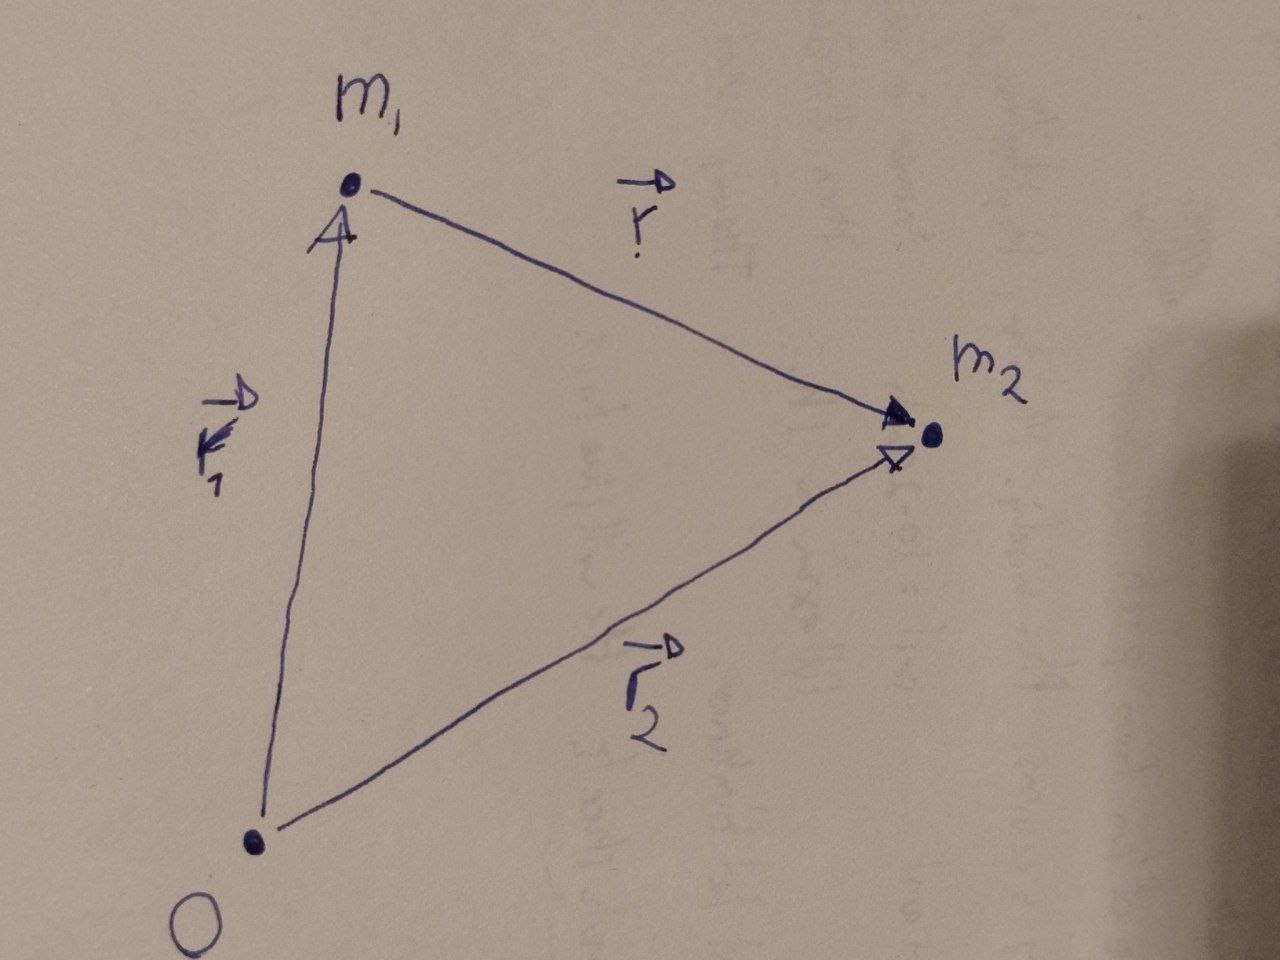 m₁
r⃗
m₂
r⃗₁
r⃗₂
O